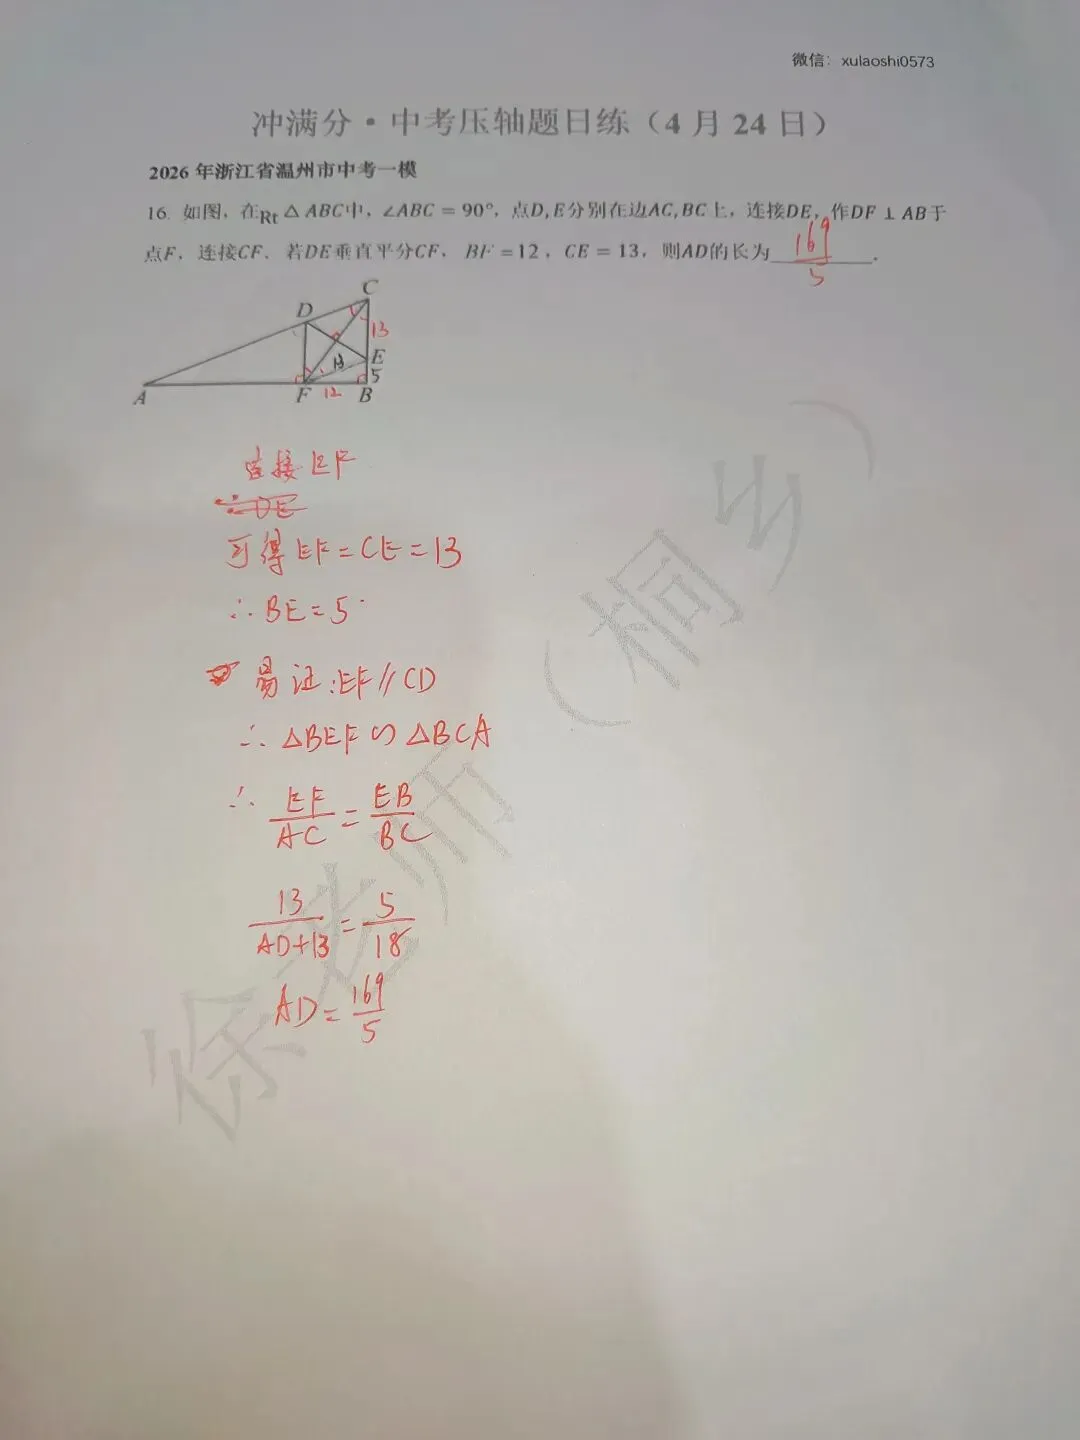 微信：xulaoshi0573
冲满分·中考压轴题日练（4 月 24 日）
2026 年浙江省温州市中考一模
16. 如图，在Rt △ ABC中，∠ABC = 90°，点D, E分别在边AC, BC上，连接DE，作DF ⊥ AB于
点F，连接CF．若DE垂直平分CF， BF = 12 ， CE = 13，则AD的长为 169/5 ．
C
D
13
13
E
5
A
F
12
B
连接EF
∵DE
可得EF=CE=13
∴BE=5
易证:EF∥CD
∴△BEF∽△BCA
∴ EF/AC = EB/BC
13/(AD+13) = 5/18
AD = 169/5
徐老师（桐乡）